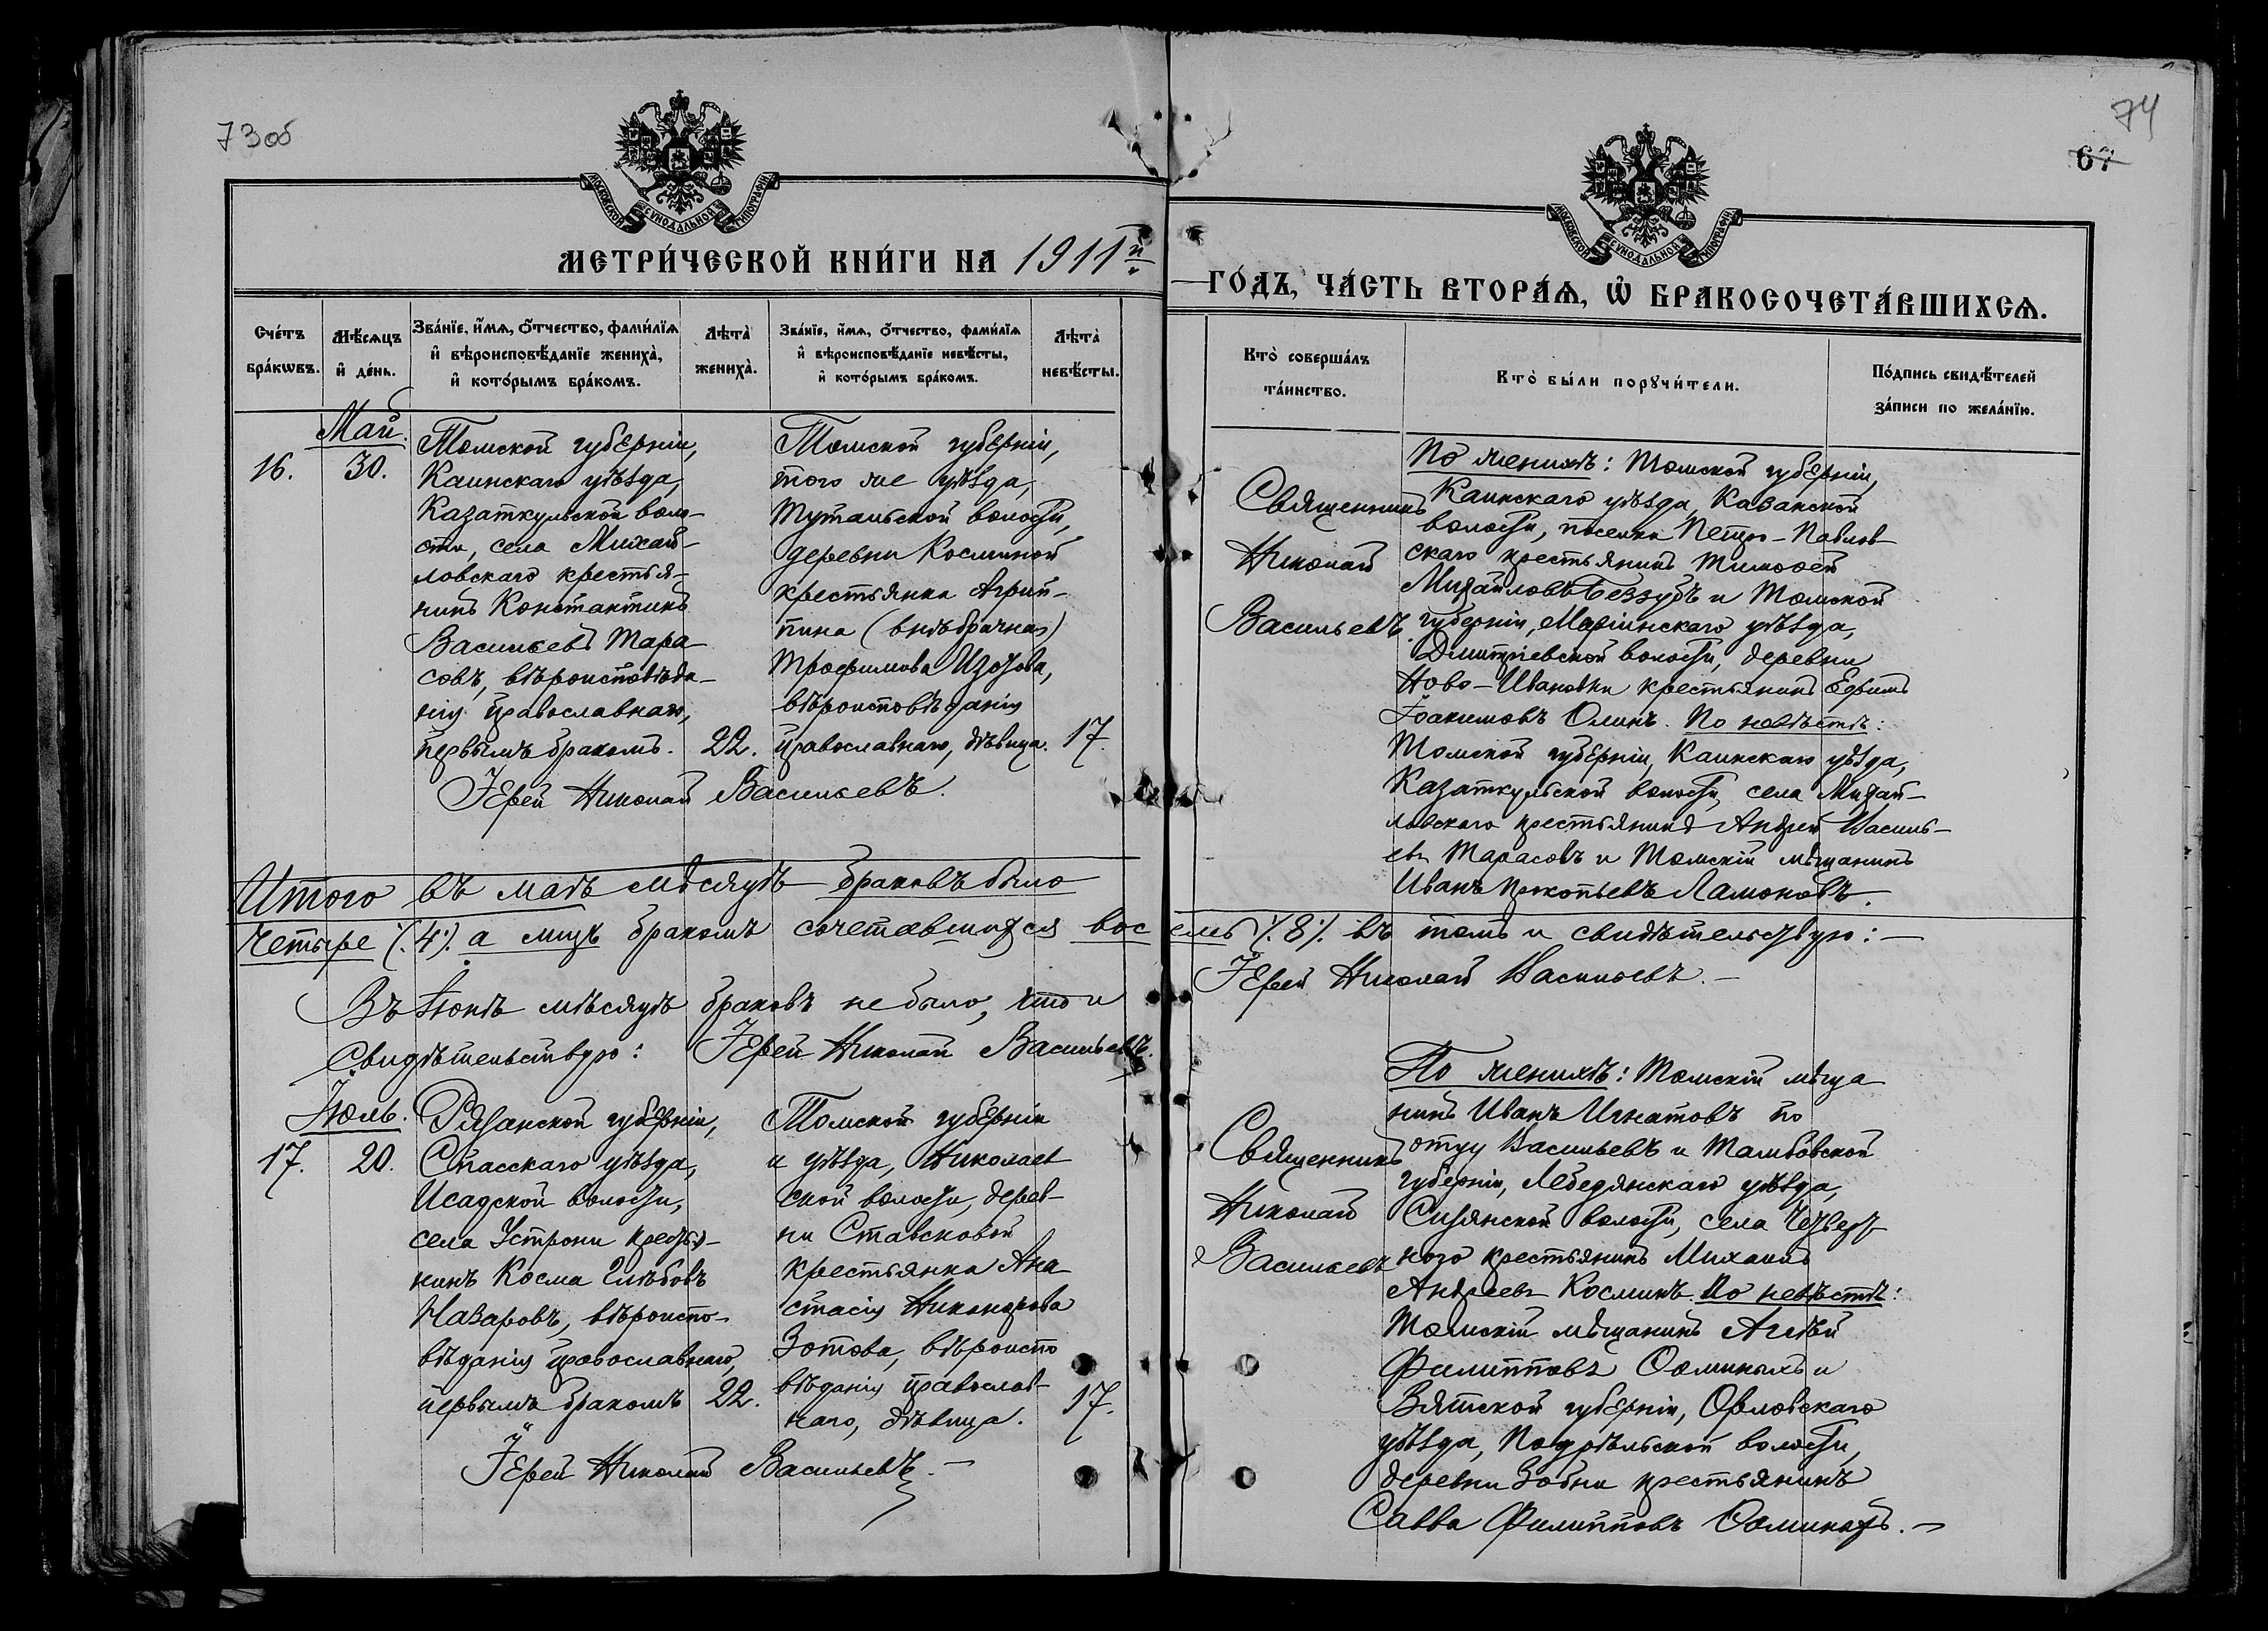 73 об
74
67
МОСКОВСКОЙ СѴНОДАЛЬНОЙ ТИПОГРАФІИ
МОСКОВСКОЙ СѴНОДАЛЬНОЙ ТИПОГРАФІИ
МЕТРИ́ЧЕСКОЙ КНИ́ГИ НА 1911й
ГО́ДЪ, ЧА́СТЬ ВТОРА́Ѧ, Ѽ БРАКОСОЧЕТА́ВШИХСѦ.
Сче́тъ
бра́кѡвъ.
Мѣ́сѧцъ
и҆ де́нь.
Зва́нїе, и҆́мѧ, ѻ҆́тчество, фами́лїѧ
и҆ вѣроисповѣ́данїе жениха̀,
и҆ кото́рымъ бра́комъ.
Лѣ́та̀
жениха̀.
Зва́нїе, и҆́мѧ, ѻ҆́тчество, фами́лїѧ
и҆ вѣроисповѣ́данїе невѣ́сты,
и҆ кото́рымъ бра́комъ.
Лѣ́та̀
невѣ́сты.
Кто̀ соверша́лъ
та́инство.
Кто̀ бы́ли порꙋчи́тели.
По́дпись свидѣ́телей
за́писи по жела́нїю.
Май.
16.
30.
Томской губерніи,
Каинскаго уѣзда,
Казаткульской воло-
сти, села Михай-
ловскаго крестья-
нинъ Константинъ
Васильевъ Тара-
совъ, вѣроисповѣда-
нія православнаго,
первымъ бракомъ.
22.
Томской губерніи,
того же уѣзда,
волости,
деревни Косминой
крестьянка Агрип-
пина (внѣбрачная)
Трофимова Изотова,
вѣроисповѣданія
православнаго, дѣвица.
17.
Іерей Николай Васильевъ.
Священникъ
Николай
Васильевъ.
По женихѣ: Томской губерніи,
Каинскаго уѣзда, Казанской
волости, поселка Петро-Павлов
скаго крестьянинъ Тимоѳей
Михайловъ Беззубъ и Томской
губерніи, Маріинскаго уѣзда,
Дмитріевской волости, деревни
Ново-Ивановки крестьянинъ Ефимъ
Іоакимовъ Олинъ. По невѣстѣ:
Томской губерніи, Каинскаго уѣзда,
Казаткульской волости, села Михай-
ловскаго крестьянинъ Андрей Василь-
евъ Тарасовъ и Томскій мѣщанинъ
Иванъ Прокопьевъ Ламоновъ.
Итого въ маѣ мѣсяцѣ браковъ было
четыре (4) а лицъ бракомъ сочетавшихся восемь (8) въ томъ и свидѣтельствую: —
Іерей Николай Васильевъ. —
Въ Іюнѣ мѣсяцѣ браковъ не было, что и
свидѣтельствую: Іерей Николай Васильевъ.
Іюль.
17.
20.
Рязанской губерніи,
Спасскаго уѣзда,
Исадской волости,
села Устрони крестья-
нинъ Косма Глѣбовъ
Назаровъ, вѣроиспо-
вѣданія православнаго,
первымъ бракомъ
22.
Томской губерніи
и уѣзда, Николаев
ской волости, дерев-
ни Ставсковой
крестьянка Ана
стасія Никонорова
Зотова, вѣроиспо
вѣданія православ-
наго, дѣвица.
17.
Іерей Николай Васильевъ. —
Священникъ
Николай
Васильевъ
По женихѣ: Томскій мѣща
нинъ Иванъ Игнатовъ по
отцу Васильевъ и Тамбовской
губерніи, Лебедянскаго уѣзда,
волости, села
крестьянинъ Михаилъ
Андреевъ Косминъ. По невѣстѣ:
Томскій мѣщанинъ Агѣй
Филипповъ Ѳоминыхъ и
Вятской губерніи, Орловскаго
уѣзда, Подрѣльской волости,
деревни Зобни крестьянинъ
Савва Филипповъ Ѳоминыхъ. —